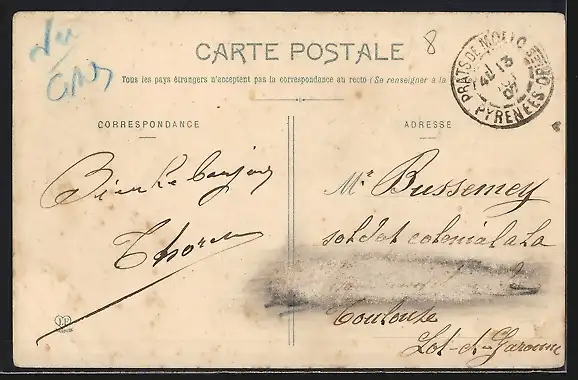 Vu
8
CARTE POSTALE
Tous les pays étrangers n'acceptent pas la correspondance au recto (Se renseigner à la
PRATS DE MOLLO
4E 13
07
PYRENEES-ORIENTALES
CORRESPONDANCE
ADRESSE
Bien le bonjour
Mr Bussemey
soldat colonial a la
Toulouse
Lot-et-Garonne